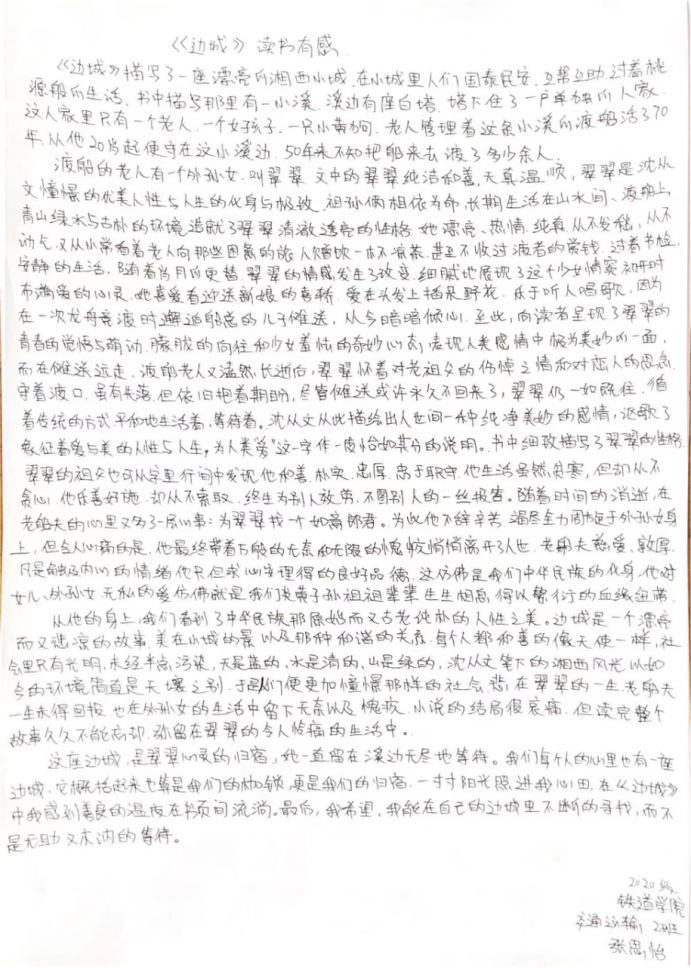 《《边城》》读书有感
《边城》描写了一座漂亮的湘西小城，在小城里人们国泰民安，互帮互助，过着桃
源般的生活。书中描写那里有一小溪，溪边有座白塔，塔下住了一户单独的人家。
这人家里只有一个老人，一个女孩子，一只小黄狗，老人管理着这条小溪的渡船活了70
年，从他20岁起便守在这小溪边，50年来不知把船来去渡了多少余人。
渡船的老人有一个外孙女，叫翠翠，文中的翠翠纯洁和善，天真温顺，翠翠是沈从
文憧憬的优美人性与人生的化身与极致，祖孙俩相依为命，长期生活在山水间、渡船上，
青山绿水与古朴的环境造就了翠翠清澈透亮的性格，她漂亮、热情、纯真，从不发愁，从不
动气，又从小常看着老人向那些困惫的旅人赠饮一杯凉茶，甚至不收过渡者的赏钱，过着节俭、
安静的生活，随着岁月的更替，翠翠的情感发生了改变，细腻地展现了这个少女情窦初开时
布满爱的心灵。她喜爱看迎送新娘的喜轿，爱在头发上插朵野花，乐于听人唱歌，因为
在一次龙舟竞渡时邂逅船总的儿子傩送，从今暗暗倾心，至此，向读者呈现了翠翠的
青春的觉悟与萌动，朦胧的向往和少女羞怯的奇妙心态，表现人类感情中极为美妙的一面，
而在傩送远走，渡船老人又溘然长逝后，翠翠怀着对老祖父的伤悼之情和对恋人的思念，
守着渡口，虽有失落，但依旧抱着期盼，尽管傩送或许永久不回来了，翠翠仍一如既往，循
着传统的方式平和地生活着，等待着。沈从文从此描绘出人世间一种纯净美妙的感情，讴歌了
象征着爱与美的人性与人生，为人类“爱”这一字作一度恰如其分的说明。书中细致描写了翠翠的性格，
翠翠的祖父也可从字里行间中发现他和善、朴实、忠厚、忠于职守，他生活虽然贫寒，但却从不
贪心，他乐善好施，却从不索取，终生为别人效劳，不图别人的一丝报答。随着时间的消逝，在
老船夫的心里又多了一层心事：为翠翠找一个如意郎君。为此他不辞辛苦，竭尽全力周旋于外孙女身
上，但令人心痛的是，他最终带着万般的无奈和无限的愧疚悄悄离开了人世，老船夫慈爱、敦厚，
凡是触及内心的情绪他只但求心安理得的良好品德，这仿佛是我们中华民族的化身，他对
女儿、外孙女无私的爱仿佛就是我们炎黄子孙祖祖辈辈生生相息，得以繁衍的血缘纽带，
从他的身上，我们看到了中华民族那原始而又古老纯朴的人性之美。边城是一个漂亮
而又凄凉的故事，美在小城的景以及那种和谐的关系，每个人都和善的像天使一样，社
会里只有光明，未经半点污染，天是蓝的，水是清的，山是绿的，沈从文笔下的湘西风光以如
今的环境简直是天壤之别，于是人们便更加憧憬那样的社会，悲，在翠翠的一生，老船夫
一生未得回报，也在外孙女的生活中留下无奈以及愧疚，小说的结局很哀痛，但读完整个
故事久久不能忘却，弥留在翠翠的令人怜痛的生活中。
这座边城，是翠翠心灵的归宿，她一直留在溪边无尽地等待。我们每个人的心里也有一座
边城，它概括起来也算是我们的枷锁，更是我们的归宿，一寸寸阳光照进我心田，在《边城》
中我感到善良的温度在书页间流淌。最后，我希望，我能在自己的边城里不断的寻找，而不
是无助又木讷的等待。
2020级
铁道学院
交通运输，2班
张思怡